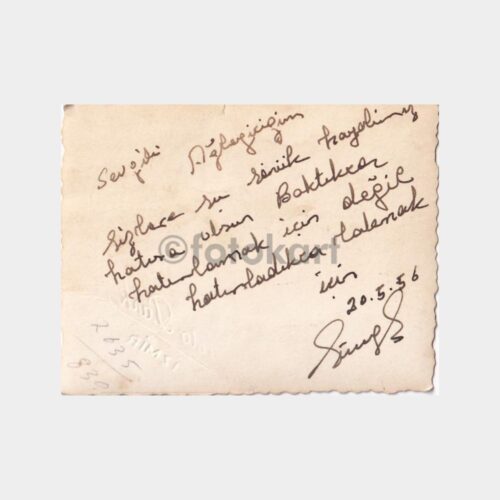 Sevgili Ağabeyciğim
Sizlere şu sönük hayalimiz
hatıra olsun Baktıkca
hatırlamak için değil
hatırladıkca bakmak
için
20.5.56
©fotokart
İZMİR
7635
830